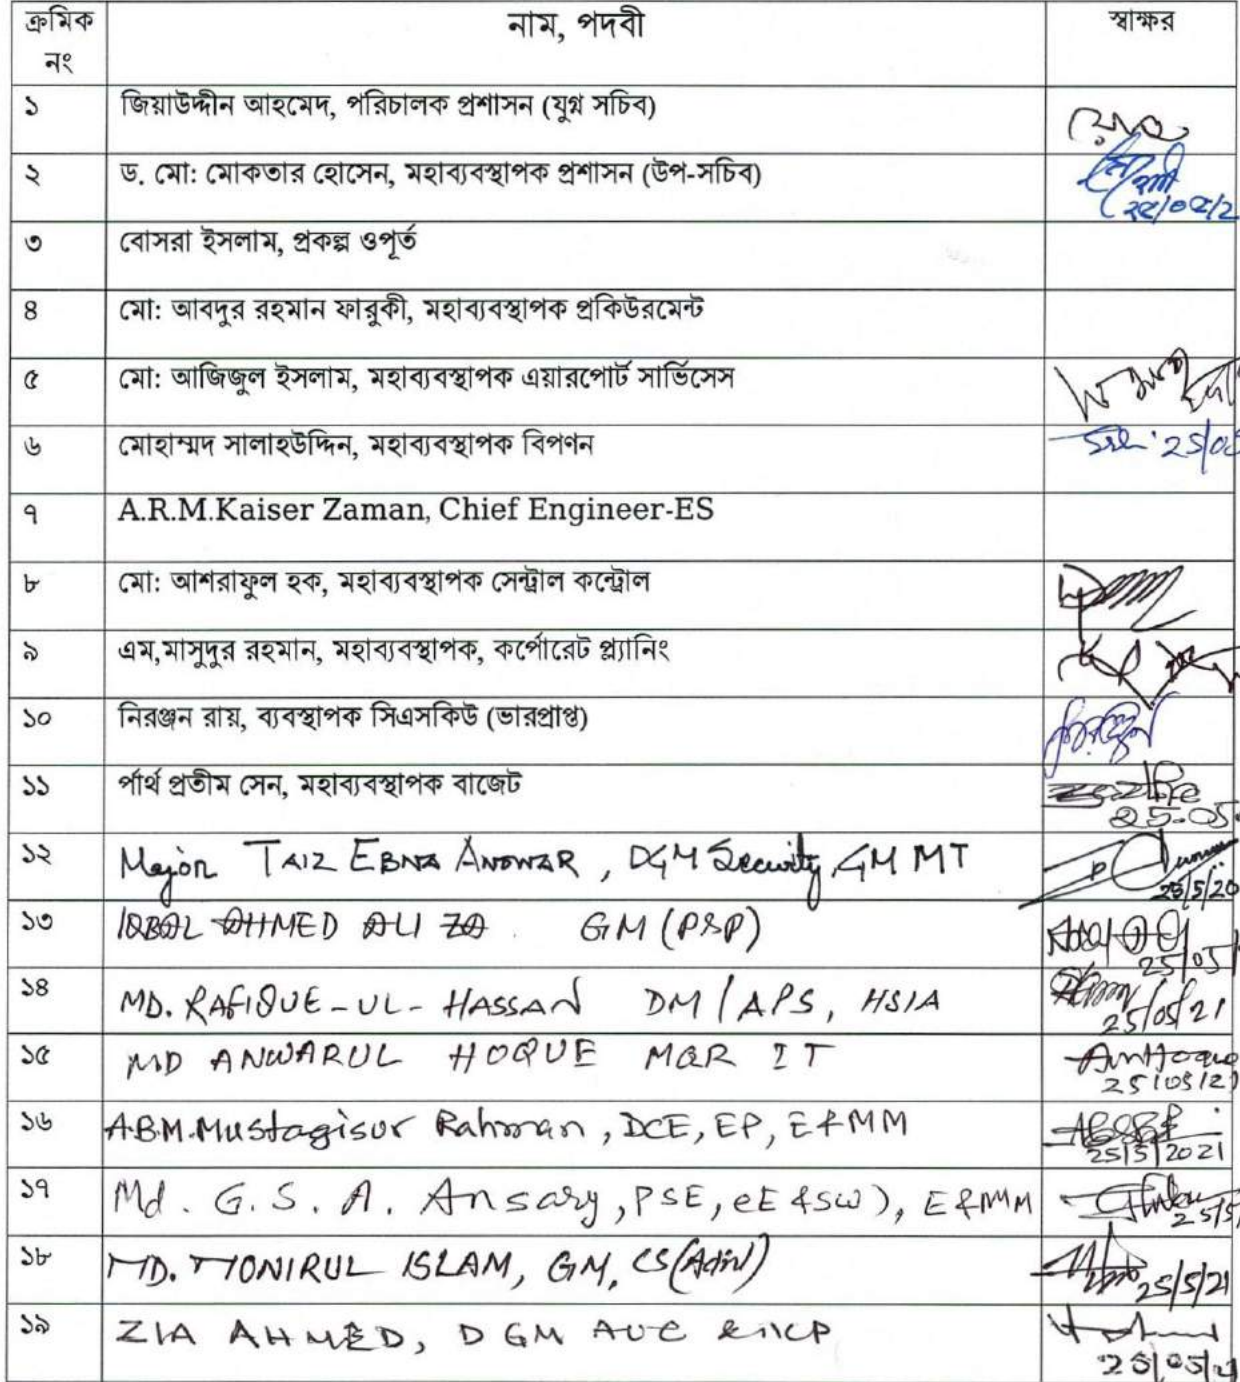 ক্রমিক নং নাম, পদবী স্বাক্ষর
১ জিয়াউদ্দীন আহমেদ, পরিচালক প্রশাসন (যুগ্ন সচিব)
২ ড. মো: মোকতার হোসেন, মহাব্যবস্থাপক প্রশাসন (উপ-সচিব)
৩ বোসরা ইসলাম, প্রকল্প ওপূর্ত
৪ মো: আবদুর রহমান ফারুকী, মহাব্যবস্থাপক প্রকিউরমেন্ট
৫ মো: আজিজুল ইসলাম, মহাব্যবস্থাপক এয়ারপোর্ট সার্ভিসেস
৬ মোহাম্মদ সালাহউদ্দিন, মহাব্যবস্থাপক বিপণন
৭ A.R.M.Kaiser Zaman, Chief Engineer-ES
৮ মো: আশরাফুল হক, মহাব্যবস্থাপক সেন্ট্রাল কন্ট্রোল
৯ এম,মাসুদুর রহমান, মহাব্যবস্থাপক, কর্পোরেট প্ল্যানিং
১০ নিরঞ্জন রায়, ব্যবস্থাপক সিএসকিউ (ভারপ্রাপ্ত)
১১ র্পাথ প্রতীম সেন, মহাব্যবস্থাপক বাজেট 25.05
১২ Major TAIZ EBNA ANOWAR, DGM Security, GM MT 25/5/20
১৩ IQBAL AHMED ALI ZA GM (PSP) 25/05/
১৪ MD. RAFIQUE-UL-HASSAN DM/APS, HSIA 25/05/21
১৫ MD ANWARUL HOQUE MGR IT AnHoque 25/05/21
১৬ A.B.M.Mustagisur Rahman, DCE, EP, E&MM 25/5/2021
১৭ Md. G. S. A. Ansary, PSE, eE&SW), E&MM 25/5/
১৮ MD. MONIRUL ISLAM, GM, CS(Adml) 25/5/21
১৯ ZIA AHMED, DGM 25/05/2